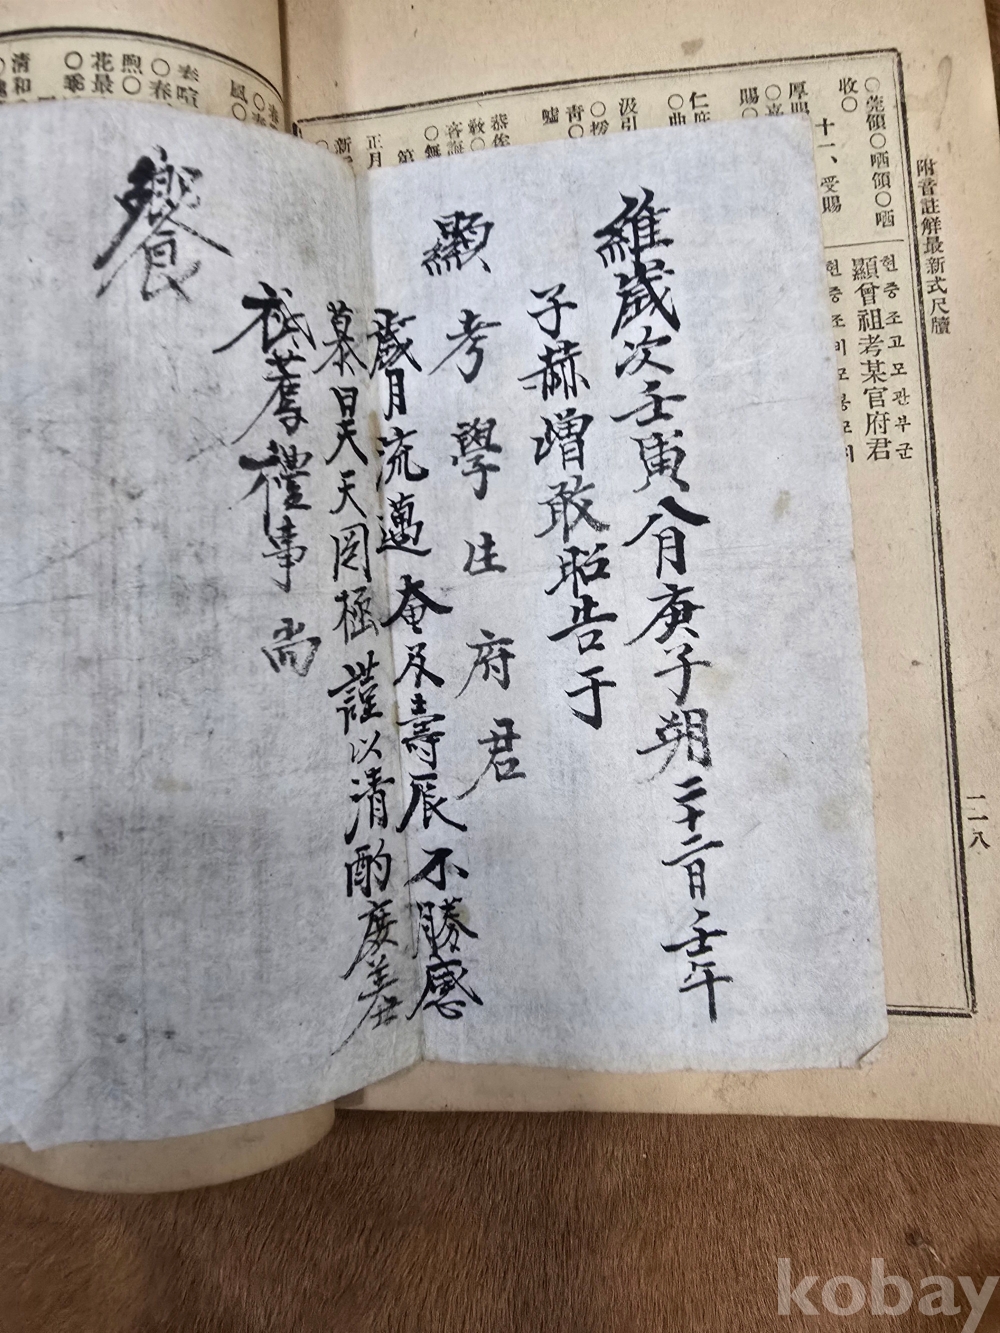 維歲次壬寅八月庚子朔二十二日壬午
子赫增敢昭告于
顯考學生府君
歲月流邁奄及壽辰不勝感
慕昊天罔極謹以清酌庶羞
祗薦禮事尙
饗
附音註解最新式尺牘
一一八
현증조고모관부군
顯曾祖考某官府君
현증조비모봉모씨
○莞領○哂領○哂
收○
十一、受賜
kobay